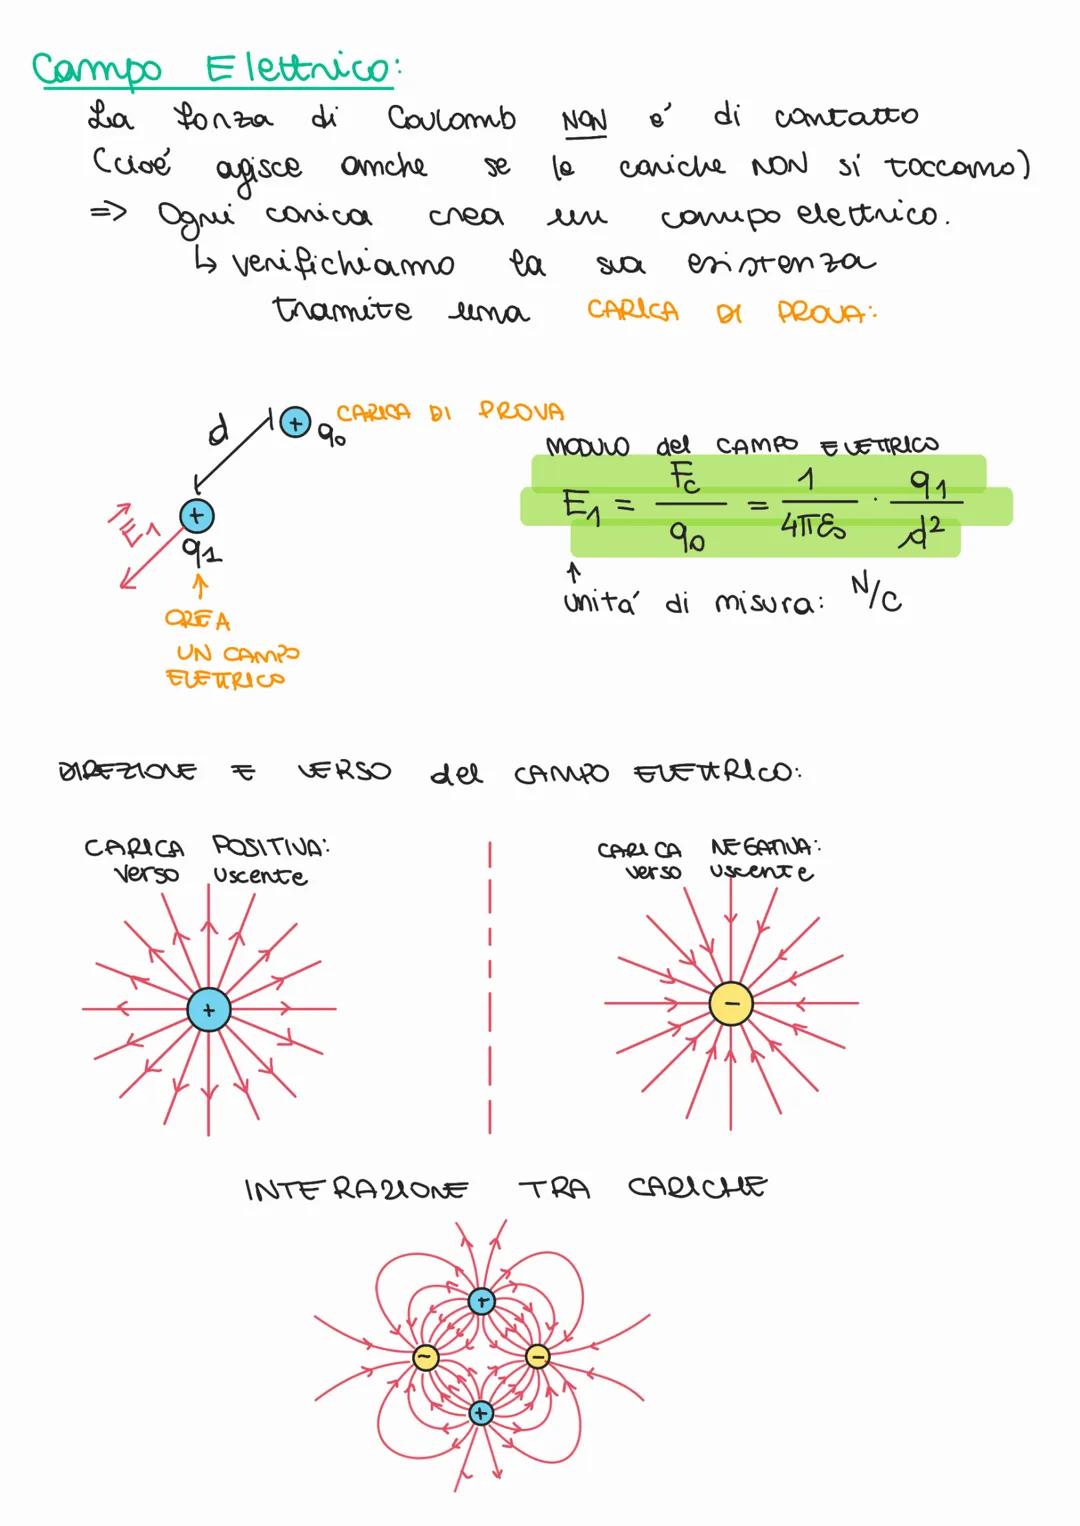 Campo Elettrico:
La forza di Coulomb NON é di contatto
(cioé agisce anche se le cariche NON si toccano)
=> Ogni carica crea un campo elettrico.
↳ verifichiamo la sua esistenza
tramite una CARICA DI PROVA:
d
+
q₀
CARICA DI PROVA
MODULO del CAMPO ELETTRICO
E₁ = F_c / q₀ = 1 / 4πε₀ · q₁ / d²
E₁
+
q₁
↑
CREA
UN CAMPO
ELETTRICO
↑
unitá di misura: N/C
DIREZIONE E VERSO del CAMPO ELETTRICO:
CARICA POSITIVA:
verso uscente
+
CARICA NEGATIVA:
verso uscente
-
INTERAZIONE TRA CARICHE
+
-
-
+